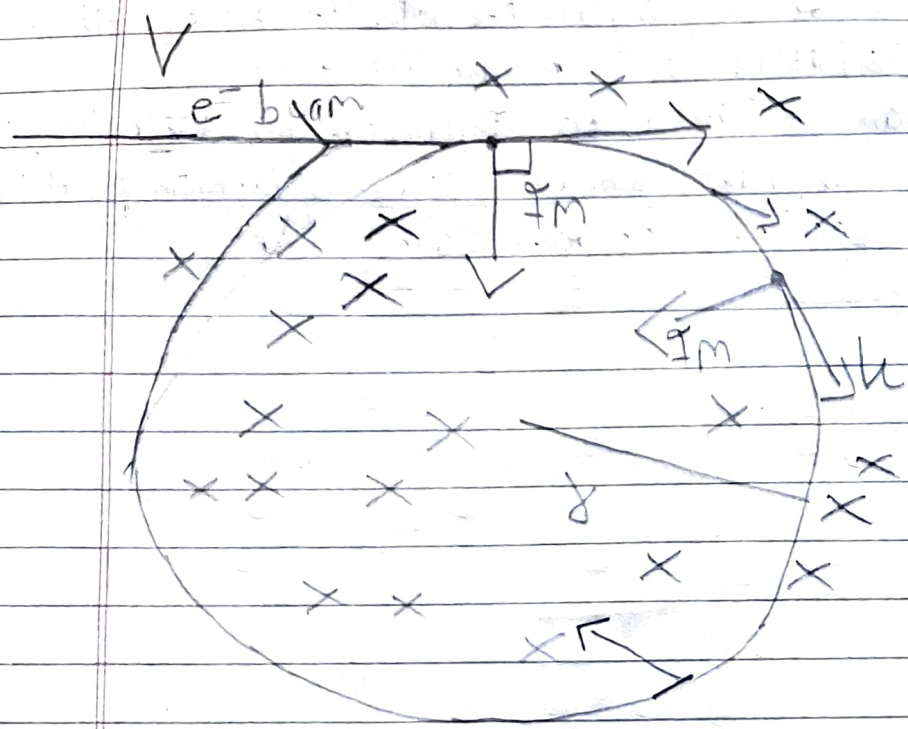 V
e⁻ beam
Fm
Fm
u
r